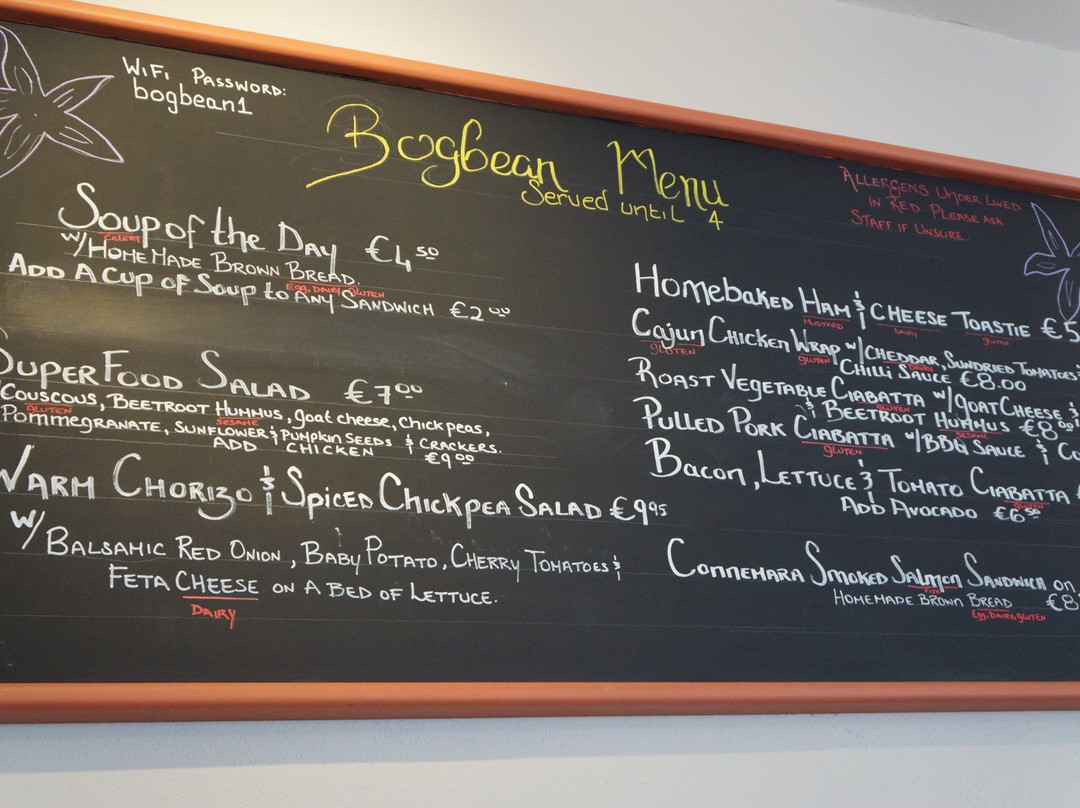 WiFi Password:
bogbean1
Bogbean Menu
Served until 4
Allergens Under Lined
in Red Please ask
Staff if Unsure.
Soup of the Day €4.50
Celery
w/Home Made Brown Bread.
Egg, Dairy, Gluten
Add A Cup of Soup to Any Sandwich €2.00
Super Food Salad €7.00
Couscous, Beetroot Hummus, goat cheese, chickpeas,
Gluten Sesame
Pommegranate, Sunflower & Pumpkin Seeds & Crackers.
Add Chicken €9.00
Warm Chorizo & Spiced Chickpea Salad €9.95
w/ Balsamic Red Onion, Baby Potato, Cherry Tomatoes &
Feta Cheese on a Bed of Lettuce.
Dairy
Homebaked Ham & Cheese Toastie €5
Mustard Dairy Gluten
Cajun Chicken Wrap w/Cheddar, Sundried Tomatoes &
Gluten Gluten Dairy
Chilli Sauce €8.00
Roast Vegetable Ciabatta w/goat Cheese &
Gluten
& Beetroot Hummus €8
Sesame
Pulled Pork Ciabatta w/BBQ Sauce & Co
Gluten
Bacon, Lettuce & Tomato Ciabatta
Gluten
Add Avocado €6.50
Connemara Smoked Salmon Sandwich on
Fish
Homemade Brown Bread €8
Egg, Dairy, Gluten